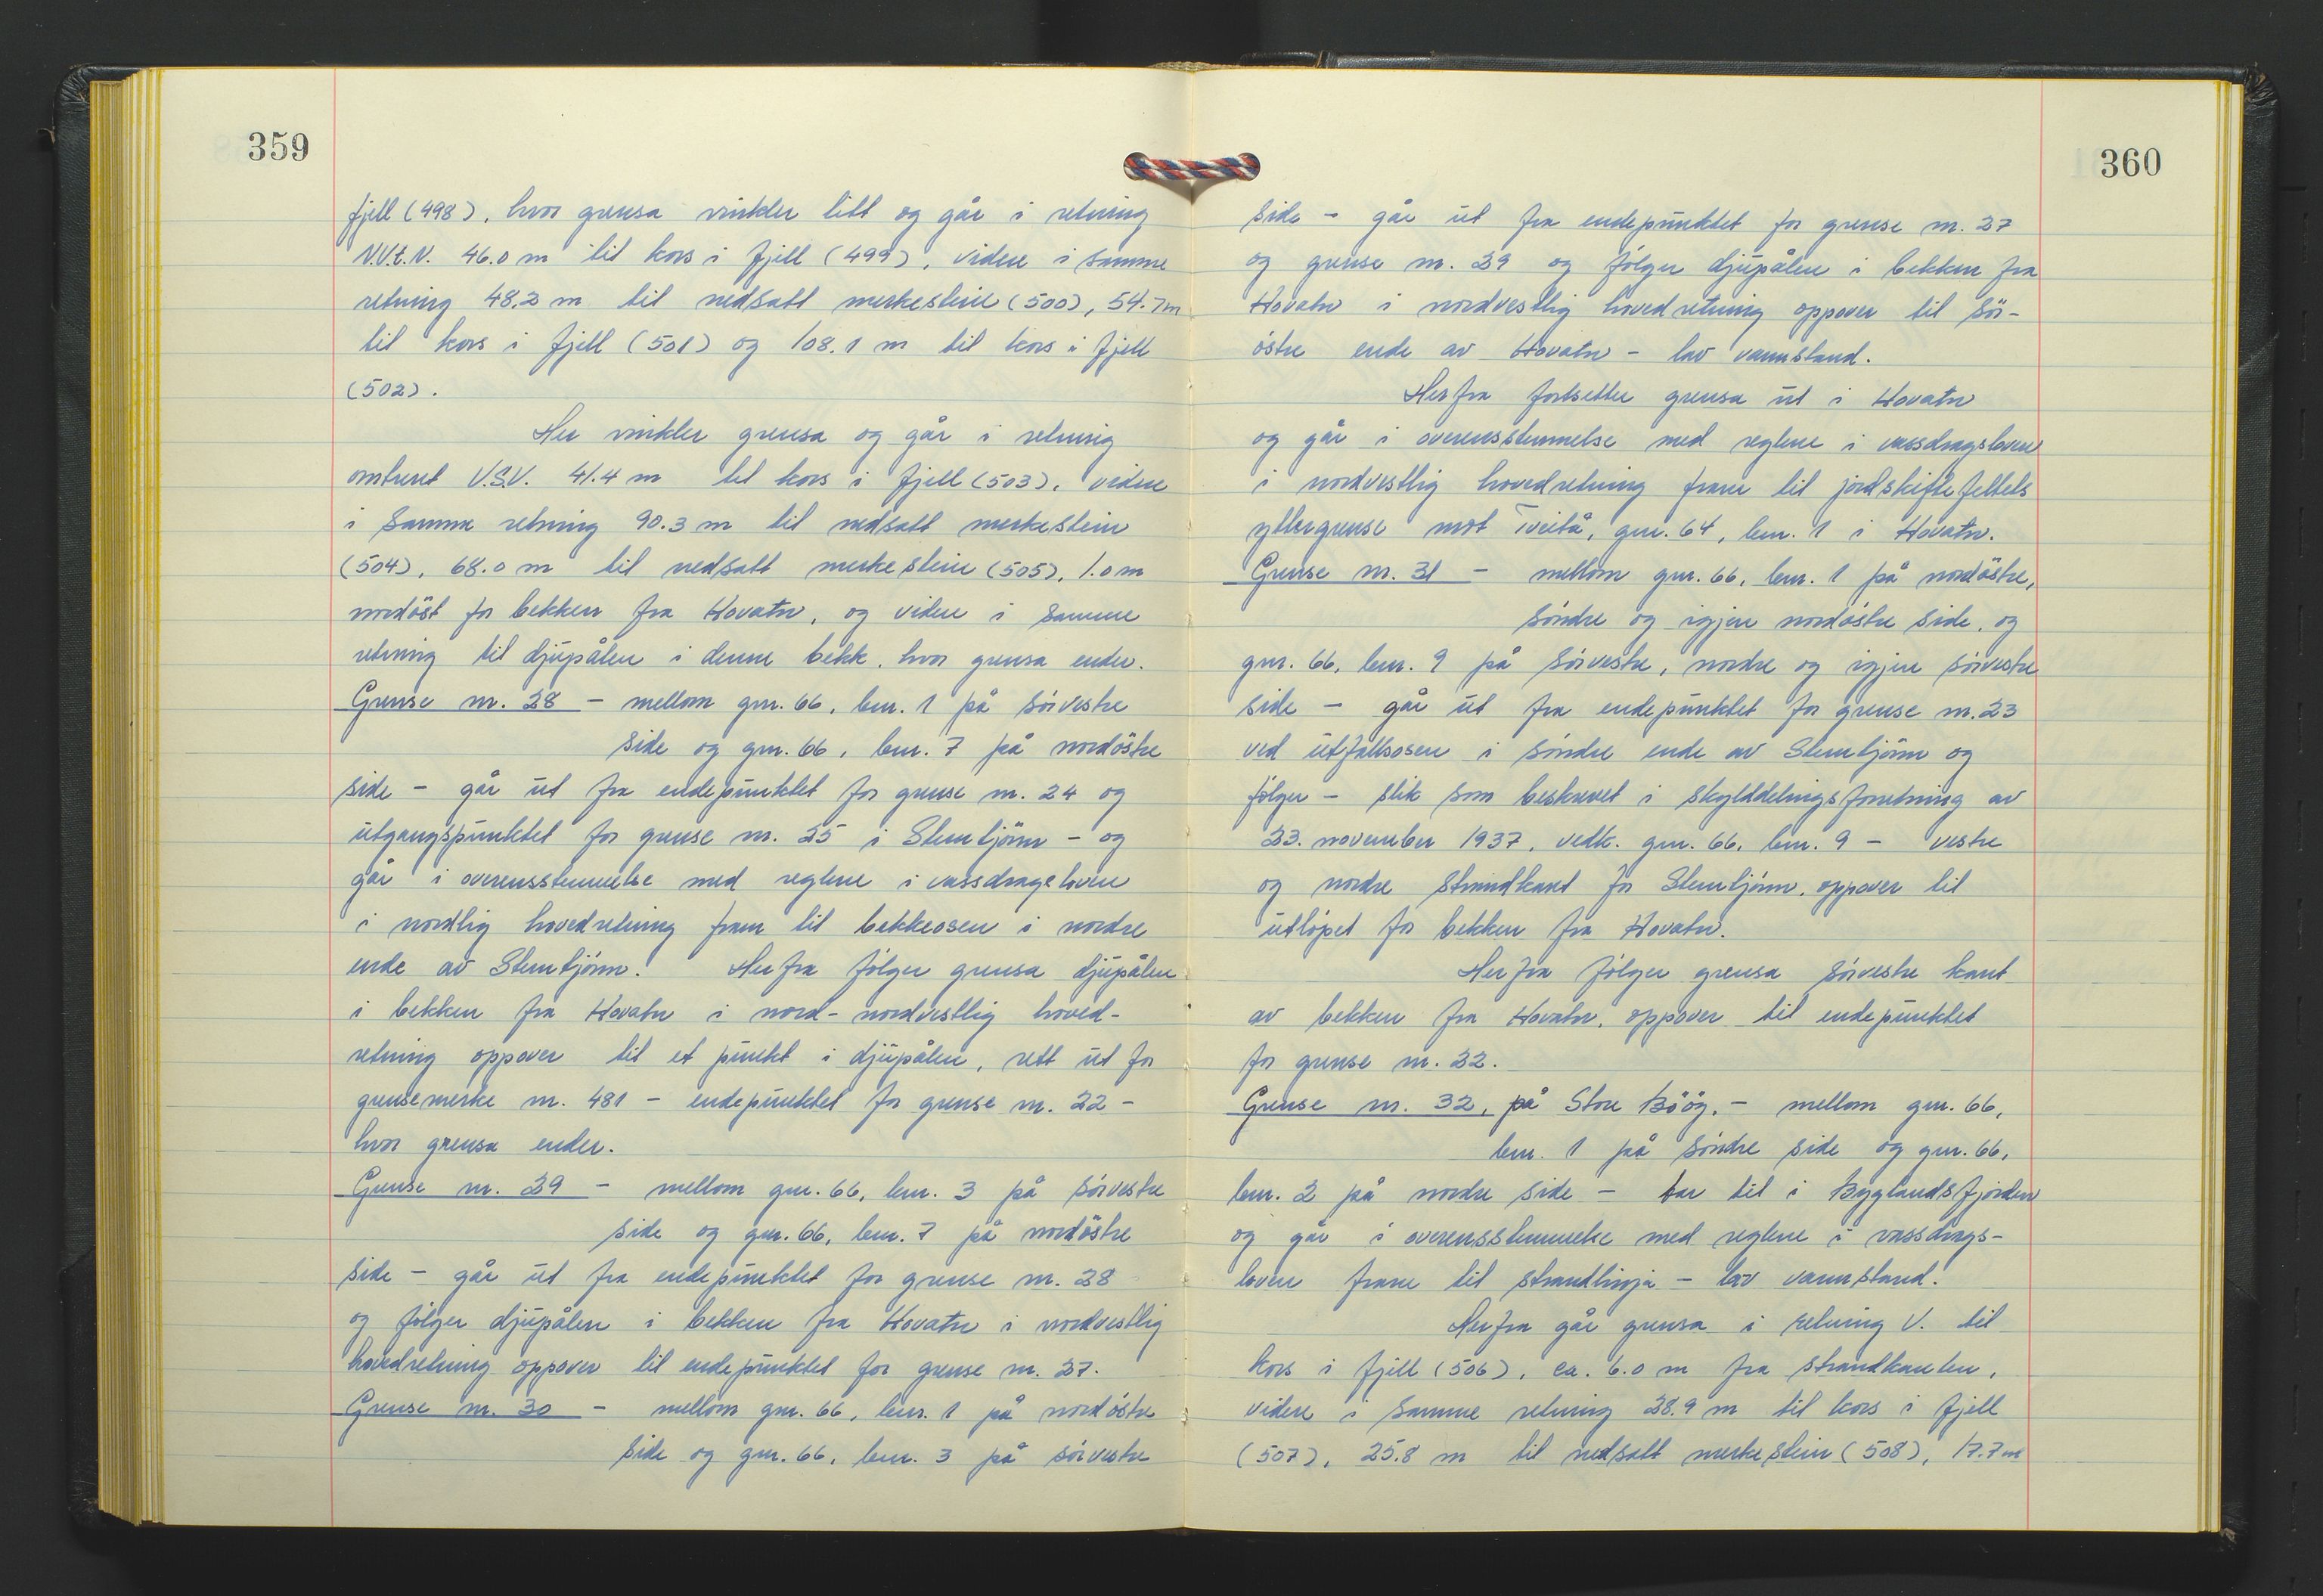 359
fjell (498), hvor grensa vinkler litt og går i retning
N.V.t.N. 46.0 m til kors i fjell (499), videre i samme
retning 48.2 m til nedsatt merkestein (500), 54.7 m
til kors i fjell (501) og 108.1 m til kors i fjell
(502).
Her vinkler grensa og går i retning
omtrent V.S.V. 41.4 m til kors i fjell (503), videre
i samme retning 90.3 m til nedsatt merkestein
(504), 68.0 m til nedsatt merkestein (505), 1.0 m
nordöst for bekken fra Hovatn, og videre i samme
retning til djupålen i denne bekk, hvor grensa ender.
Grense nr. 28 - mellom gnr. 66, bnr. 1 på sörvestre
side og gnr. 66, bnr. 7 på nordöstre
side - går ut fra endepunktet for grense nr. 24 og
utgangspunktet for grense nr. 25 i Stemtjönn - og
går i overensstemmelse med reglene i vassdragsloven
i nordlig hovedretning fram til bekkeosen i nordre
ende av Stemtjönn. Herfra fölger grensa djupålen
i bekken fra Hovatn i nord-nordvestlig hoved-
retning oppover til et punkt i djupålen, rett ut for
grensemerke nr. 481 - endepunktet for grense nr. 22 -
hvor grensa ender.
Grense nr. 29 - mellom gnr. 66, bnr. 3 på sörvestre
side og gnr. 66, bnr. 7 på nordöstre
side - går ut fra endepunktet for grense nr. 28
og fölger djupålen i bekken fra Hovatn i nordvestlig
hovedretning oppover til endepunktet for grense nr. 27.
Grense nr. 30 - mellom gnr. 66, bnr. 1 på nordöstre
side og gnr. 66, bnr. 3 på sörvestre
360
side - går ut fra endepunktet for grense nr. 27
og grense nr. 29 og fölger djupålen i bekken fra
Hovatn i nordvestlig hovedretning oppover til sör-
östre ende av Hovatn - lav vannstand.
Herfra fortsetter grensa ut i Hovatn
og går i overensstemmelse med reglene i vassdragsloven
i nordvestlig hovedretning fram til jordskiftefeltets
yttergrense mot Tveitå, gnr. 64, bnr. 1 i Hovatn.
Grense nr. 31 - mellom gnr. 66, bnr. 1 på nordöstre,
söndre og igjen nordöstre side, og
gnr. 66, bnr. 9 på sörvestre, nordre og igjen sörvestre
side - går ut fra endepunktet for grense nr. 23
ved utfallsosen i söndre ende av Stemtjönn og
fölger - slik som beskrevet i skylddelingsforretning av
23. november 1937, vedk. gnr. 66, bnr. 9 - vestre
og nordre strandkant for Stemtjönn, oppover til
utlöpet for bekken fra Hovatn.
Herfra fölger grensa sörvestre kant
av bekken fra Hovatn, oppover til endepunktet
for grense nr. 22.
Grense nr. 32, på Store Böög. - mellom gnr. 66,
bnr. 1 på söndre side og gnr. 66,
bnr. 2 på nordre side - tar til i Byglandsfjorden
og går i overensstemmelse med reglene i vassdrags-
loven fram til strandlinja - lav vannstand.
Herfra går grensa i retning V. til
kors i fjell (506), ca. 6.0 m fra strandkanten,
videre i samme retning 28.9 m til kors i fjell
(507), 25.8 m til nedsatt merkestein (508), 17.7 m